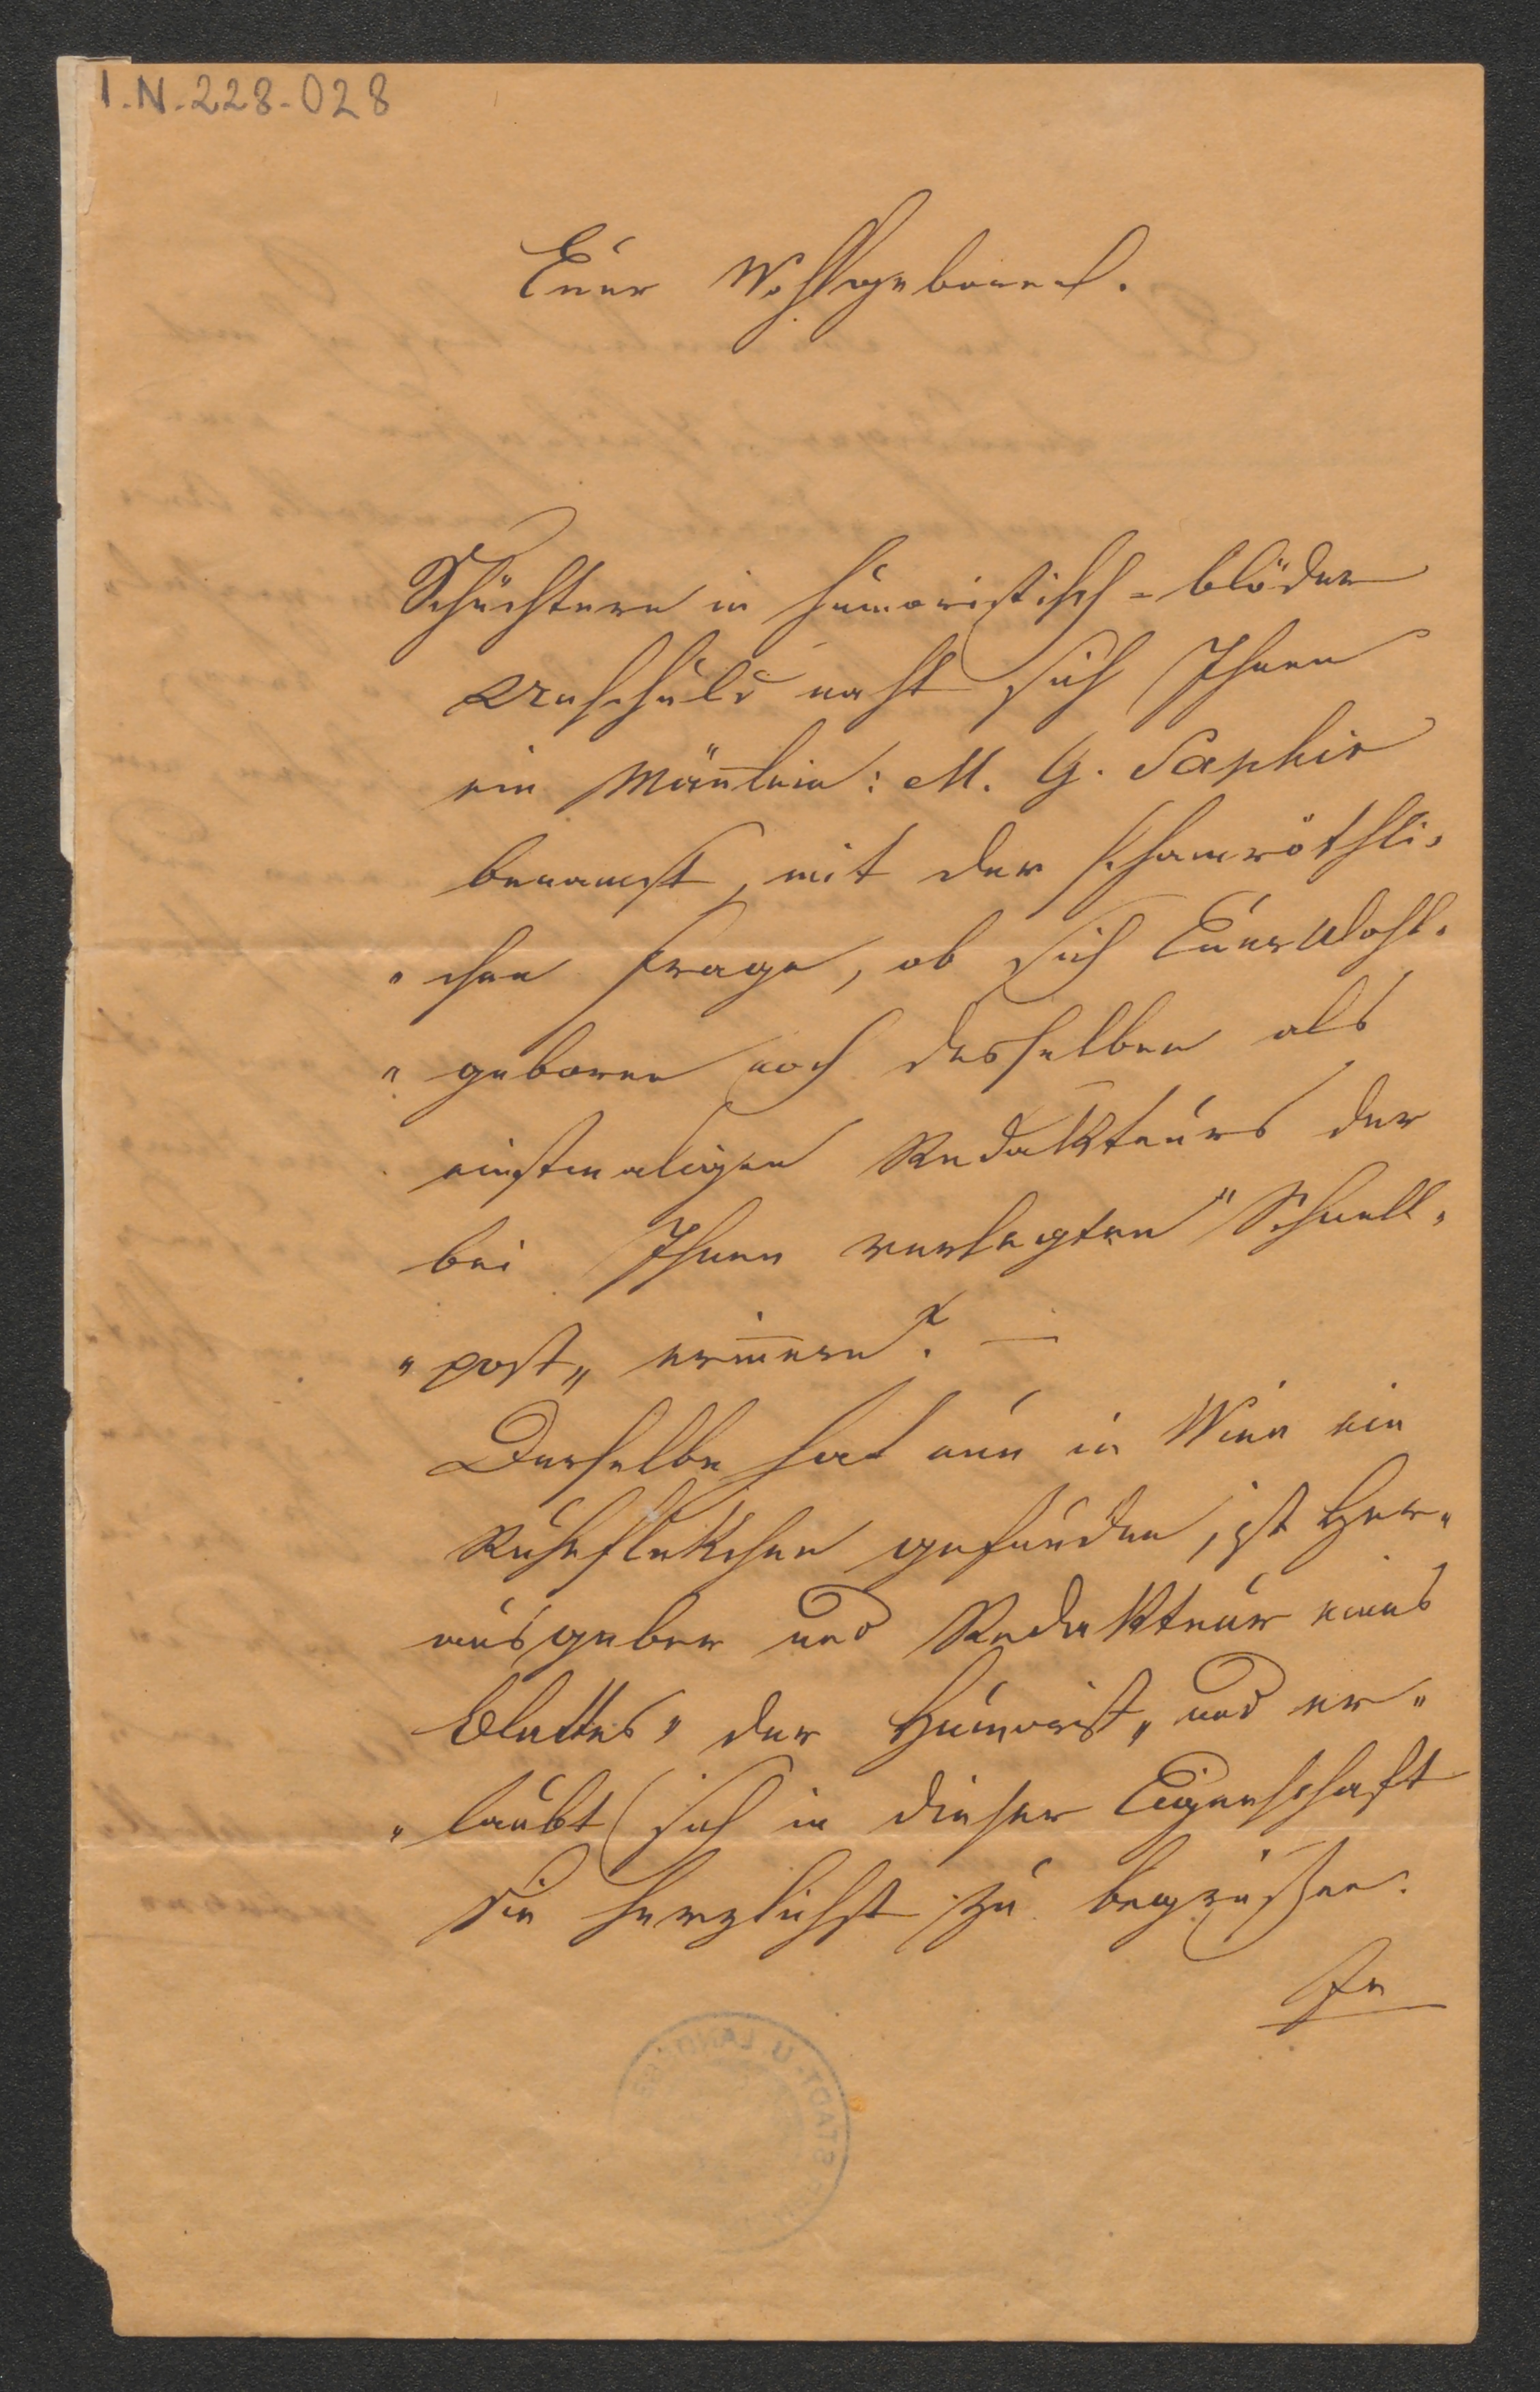 I.N.-228-028
Euer Wohlgeboren.
Schüchtern in humoristisch-blöder
Unschuld naht sich Ihnen
ein Män̄lein: M. G. Saphir
benamst, mit der schamröthli-
"chen Frage, ob sich Euer Wohl-
"geboren noch desselben als
einstmaligen Redakteurs der
bei Ihnen verlegten "Schnell-
"post" erin̄ern? —
Derselbe hat nun in Wien ein
Ruhefleckchen gefunden, ist Her-
ausgeber und Redakteur eines
Blattes "der Humorist" und er-
"laubt sich in dieser Eigenschaft
Sie herzlichst zu begrüßen.
STADT- U. LANDES